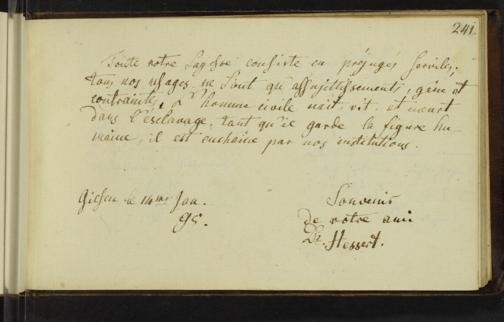 241.
Toute notre Sagesse consiste en préjugés serviles;
tous nos usages ne sont qu'assujettissements, gêne et
contrainte. L'homme civile nait vit et meurt
dans l'esclavage, tant qu'il garde la figure hu-
maine, il est enchaîné par nos institutions.
Giesen le 14me Jan.
95.
Souvenir
de votre ami
Hessert.